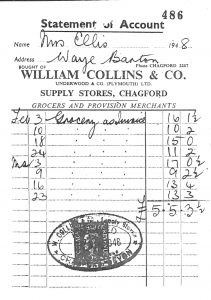 486
Statement of Account
Name Mrs Ellis 1948.
Address Waye Barton
BOUGHT OF Phone CHAGFORD 2257
WILLIAM COLLINS & CO.
UNDERWOOD & CO. (PLYMOUTH) LTD.
SUPPLY STORES, CHAGFORD
GROCERIES AND PROVISION MERCHANTS
Feb 3 Grocery as Invoice 16 1½
10 10 2
18 15 0
24 11 2
Mar 3 17 0½
9
16 13 4
23 13 3
£ 5 5 3½
W. COLLINS